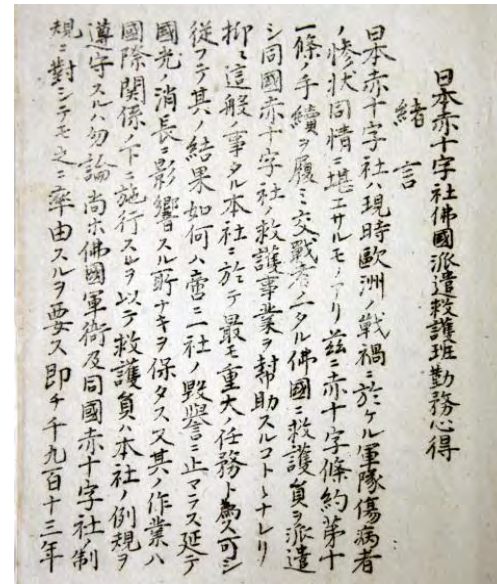 日本赤十字社佛國派遣救護班勤務心得
緒言
日本赤十字社ハ現時歐洲ノ戰禍ニ於ケル軍隊傷病者
ノ慘状同情ニ堪エサルモノアリ茲ニ赤十字條約第十
一條ノ手續ヲ履ミ交戰者ノ一タル佛國ニ救護員ヲ派遣
シ同國赤十字社ノ救護事業ヲ幇助スルコトヽナレリ
抑〻這般ノ事タル本社ニ於テ最モ重大ノ任務ト為ス可シ
從フテ其ノ結果如何ハ啻ニ社ノ毀譽ニ止マラス延テ
國光ノ消長ニ影響スル所ナキヲ保タスス其ノ作業ハ
國際関係ノ下ニ施行スルヲ以テ救護員ハ本社ノ例規ヲ
遵守スルハ勿論尚ホ佛國軍衙及同國赤十字社ノ制
規ニ對シテモ之ニ率由スルヲ要ス即チ千九百十三年